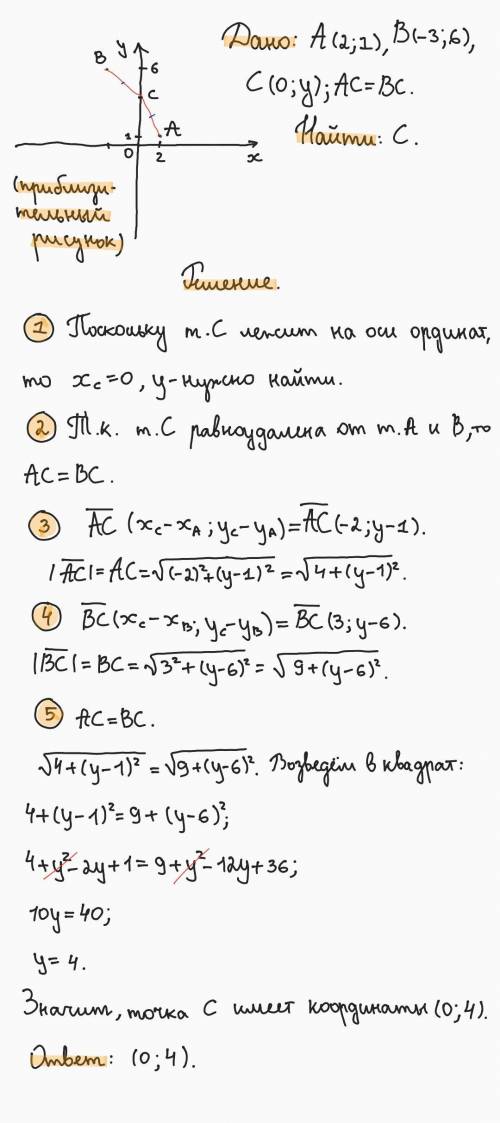 Дано: A(2;1), B(-3;6),
C(0;y); AC=BC.
Найти: C.
B y 6
C
1 A
0 2 x
(приблизи-
тельный
рисунок)
Решение.
1 Поскольку т.C лежит на оси ординат,
то x_C=0, y-нужно найти.
2 Т.к. т.C равноудалена от т.A и B, то
AC=BC.
3 A̅C̅ (x_C-x_A; y_C-y_A)=A̅C̅(-2; y-1).
|A̅C̅|=AC=√((-2)²+(y-1)²)=√(4+(y-1)²).
4 B̅C̅(x_C-x_B; y_C-y_B)=B̅C̅(3; y-6).
|B̅C̅|=BC=√(3²+(y-6)²)=√(9+(y-6)²).
5 AC=BC.
√(4+(y-1)²)=√(9+(y-6)²). Возведём в квадрат:
4+(y-1)²=9+(y-6)²;
4+y²-2y+1=9+y²-12y+36;
10y=40;
y=4.
Значит, точка C имеет координаты (0;4).
Ответ: (0;4).